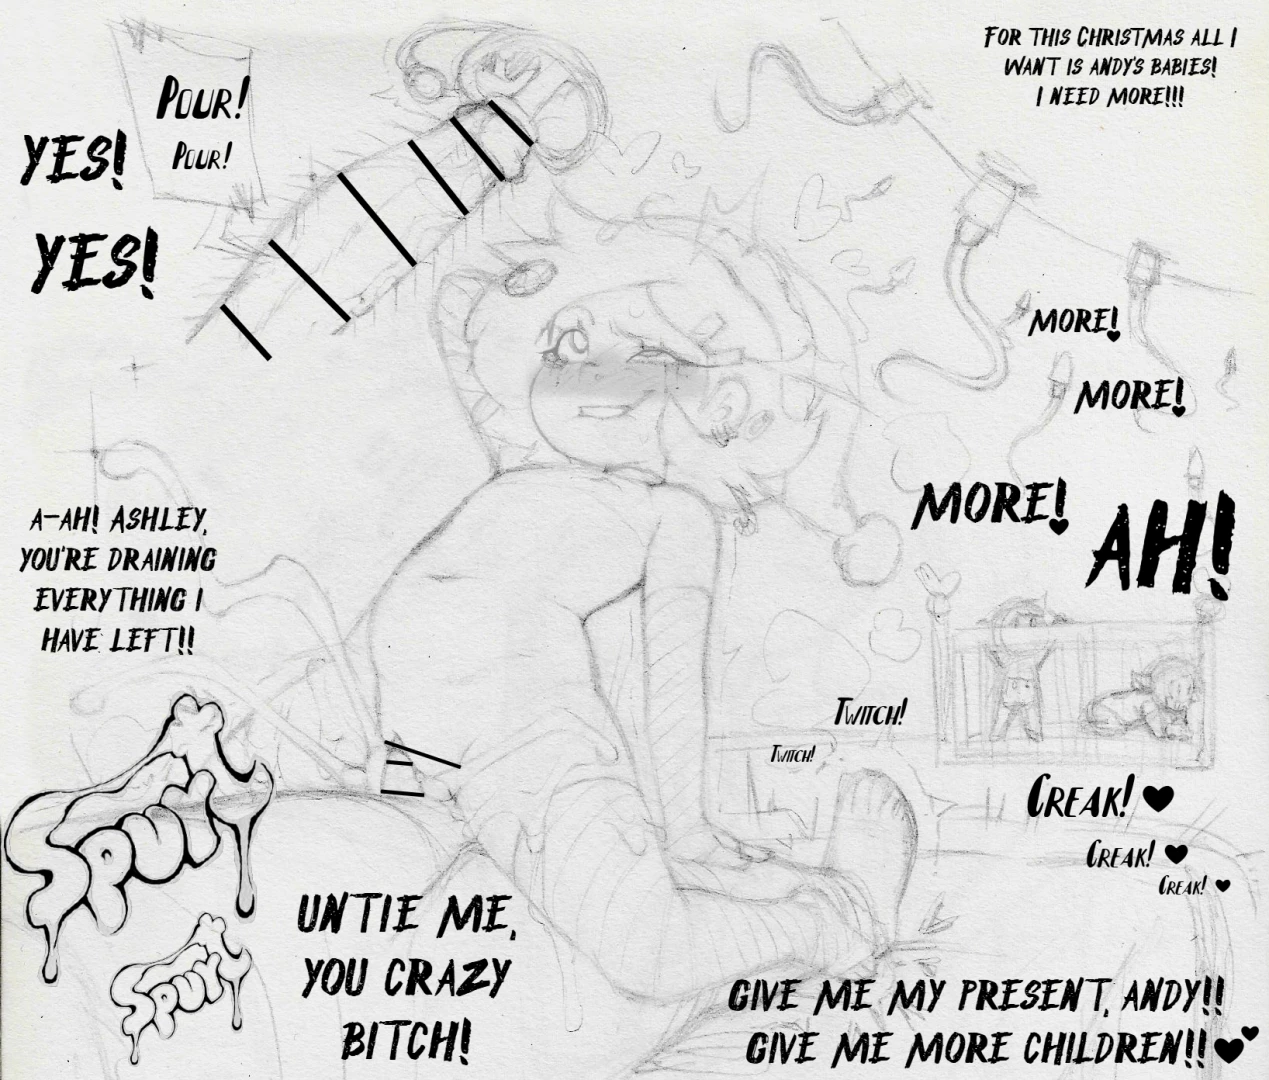 FOR THIS CHRISTMAS ALL I
WANT IS ANDY'S BABIES!
I NEED MORE!!!
POUR!
POUR!
YES!
YES!
MORE!
MORE!
MORE!
AH!
A-AH! ASHLEY,
YOU'RE DRAINING
EVERYTHING I
HAVE LEFT!!
TWITCH!
TWITCH!
SPURT
SPURT
CREAK!
CREAK!
CREAK!
UNTIE ME,
YOU CRAZY
BITCH!
GIVE ME MY PRESENT, ANDY!!
GIVE ME MORE CHILDREN!!